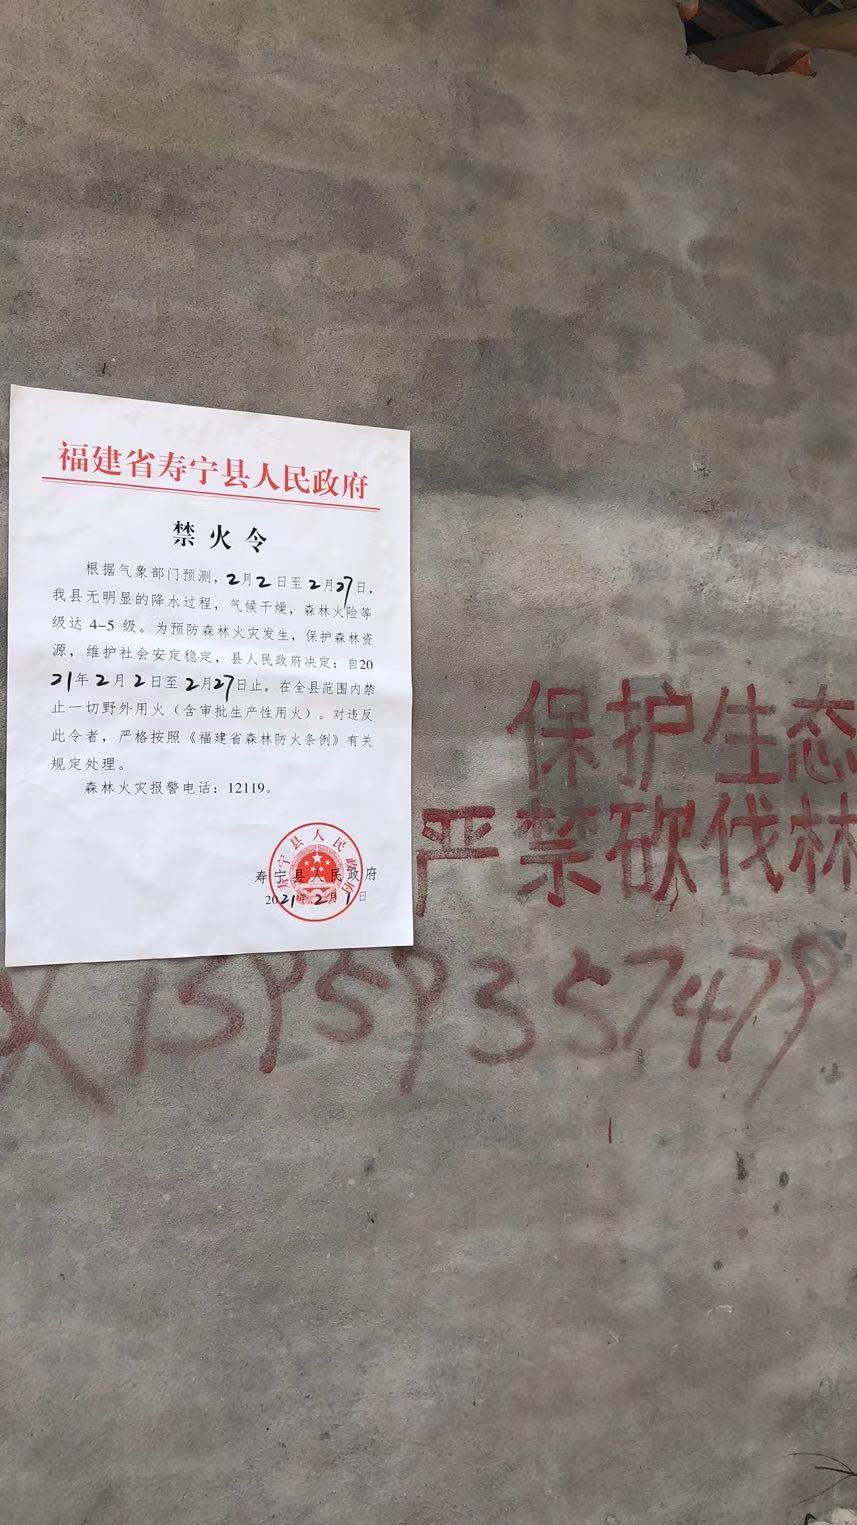 福建省寿宁县人民政府
禁火令
根据气象部门预测，2月2日至2月27日，
我县无明显的降水过程，气候干燥，森林火险等
级达 4-5 级。为预防森林火灾发生，保护森林资
源，维护社会安定稳定，县人民政府决定：自20
21年2月2日至2月27日止，在全县范围内禁
止一切野外用火（含审批生产性用火）。对违反
此令者，严格按照《福建省森林防火条例》有关
规定处理。
森林火灾报警电话：12119。
寿宁县人民政府
寿宁县人民政府
2021年2月1日
保护生态
严禁砍伐林
15959357479